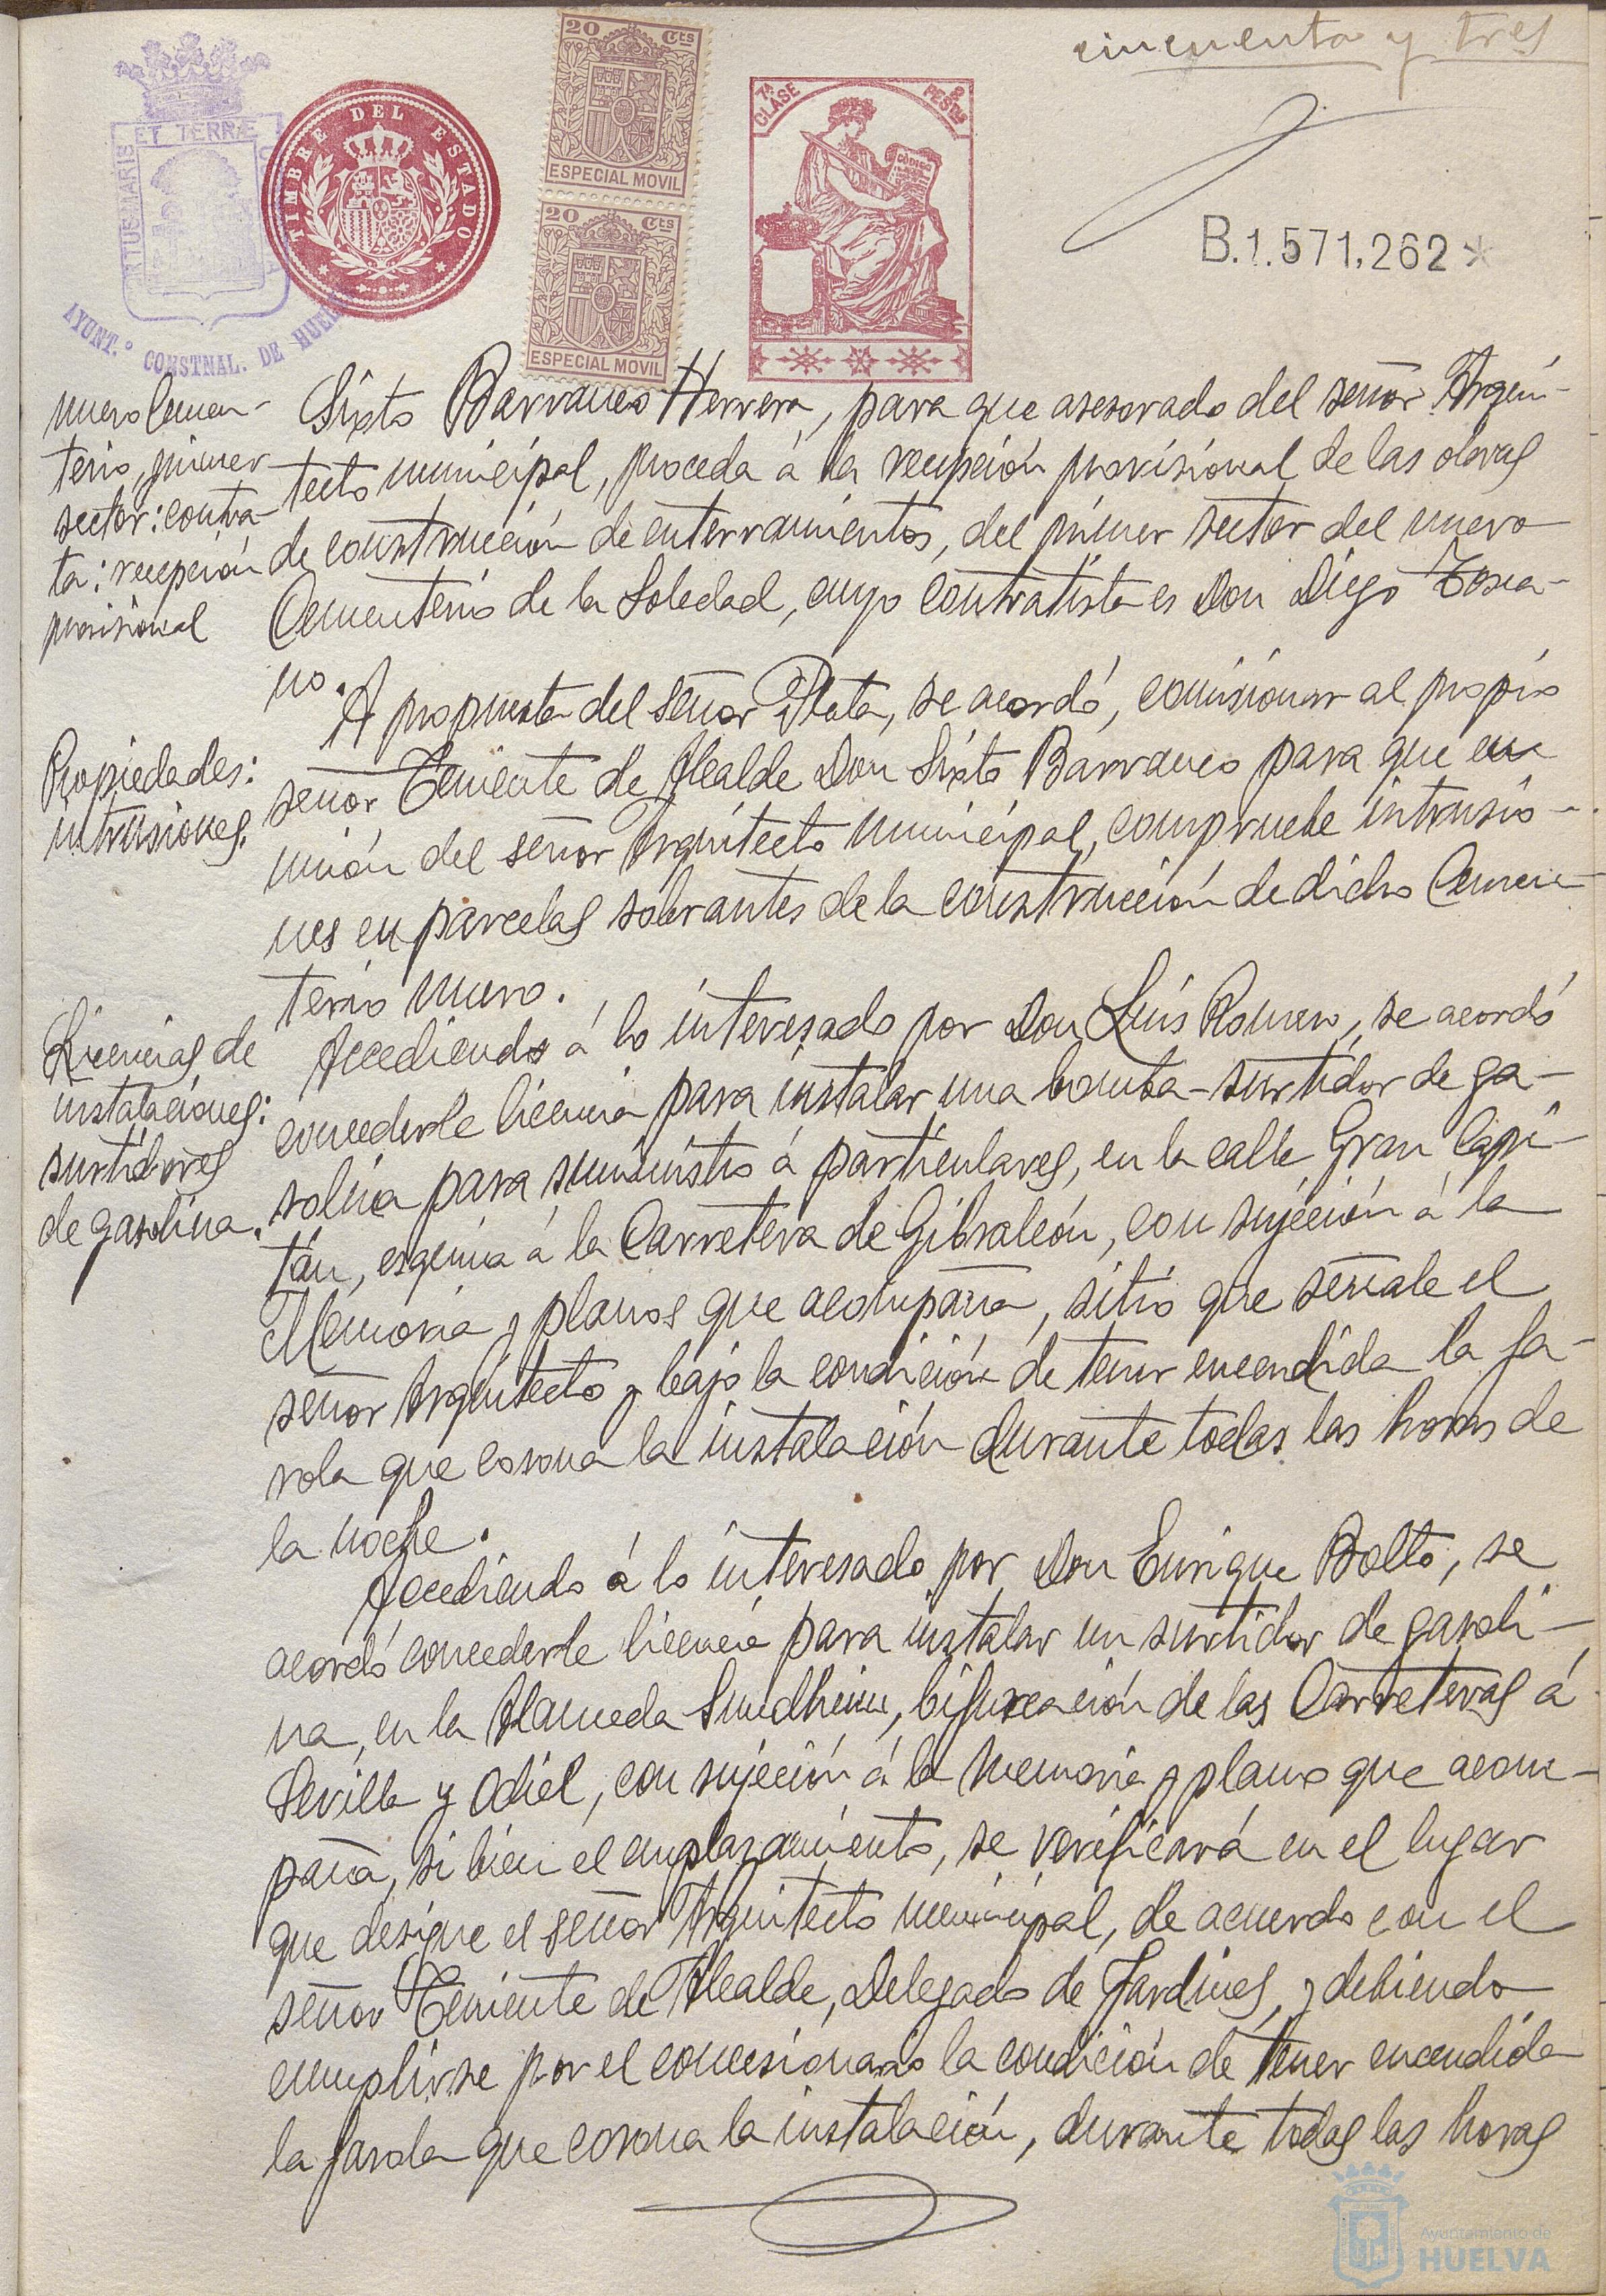 cincuenta y tres
PORTUS MARIS ET TERRÆ CUSTODIA
AYUNT.º CONSTNAL. DE HUELVA
TIMBRE DEL ESTADO
20 Cts
ESPECIAL MOVIL
20 Cts
ESPECIAL MOVIL
7ª CLASE
2 PESTAS
CODIGO
B.1.571,262*
nuevo Cemen-
terio, primer
sector: contra-
ta: recepción
provisional
Sixto Barranco Herrera, para que asesorado del señor Arqui-
tecto municipal, proceda á la recepción provisional de las obras
de construcción de enterramientos, del primer sector del nuevo
Cementerio de la Soledad, cuyo contratista es Don Diego Tosca-
no.
Propiedades:
intrusiones.
A propuesta del señor Plata, se acordó, comisionar al propio
señor Teniente de Alcalde Don Sixto Barranco para que en
unión del señor Arquitecto municipal, compruebe intrusio-
nes en parcelas sobrantes de la construcción de dicho Cemen-
terio nuevo.
Licencias de
instalaciones:
surtidores
de gasolina.
Accediendo á lo interesado por Don Luis Romero, se acordó
concederle licencia para instalar una bomba-surtidor de ga-
solina para suministro á particulares, en la calle Gran Capi-
tán, esquina á la Carretera de Gibraleón, con sujeción á la
Memoria y planos que acompaña, sitio que señale el
señor Arquitecto y bajo la condición de tener encendida la fa-
rola que corona la instalación durante todas las horas de
la noche.
Accediendo á lo interesado por Don Enrique Boltó, se
acordó concederle licencia para instalar un surtidor de gasoli-
na, en la Alameda Sundheim, bifurcación de las Carreteras á
Sevilla y Odiel, con sujeción á la memoria y plano que acom-
paña, si bien el emplazamiento, se verificará en el lugar
que designe el señor Arquitecto municipal, de acuerdo con el
señor Teniente de Alcalde, Delegado de Jardines, y debiendo
cumplirse por el concesionario la condición de tener encendida
la farola que corona la instalación, durante todas las horas
Ayuntamiento de
HUELVA